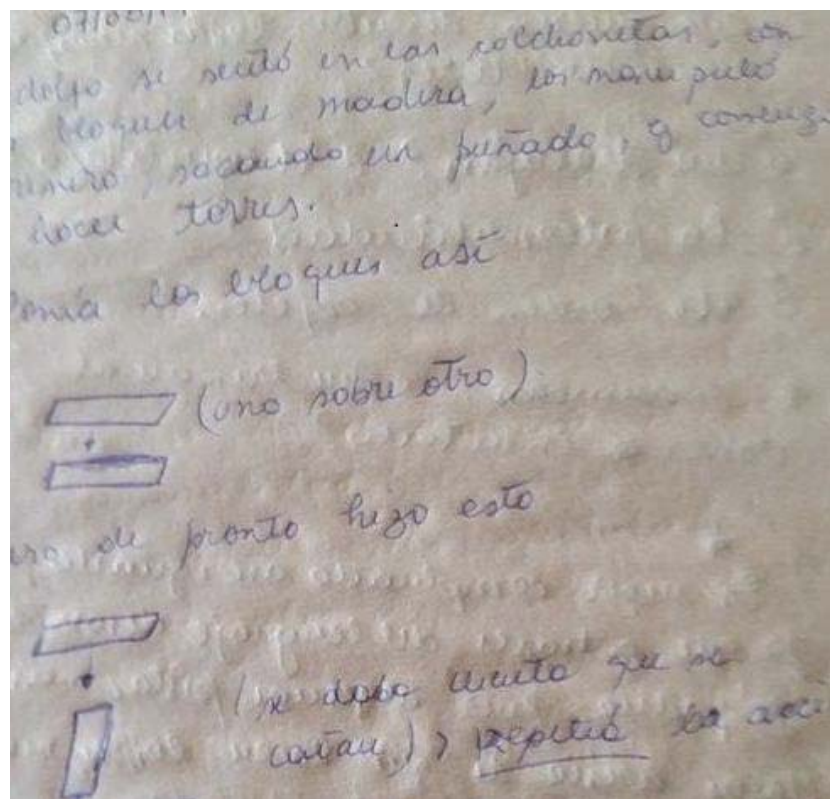 se sentó en las colchonetas, con
bloques de madera, los manipuló
primero, sacando un puñado, y comenz
hacer torres.
Ponía los bloques así
(uno sobre otro)
de pronto hizo esto
(se daba cuenta que se
caían), repitió la acci